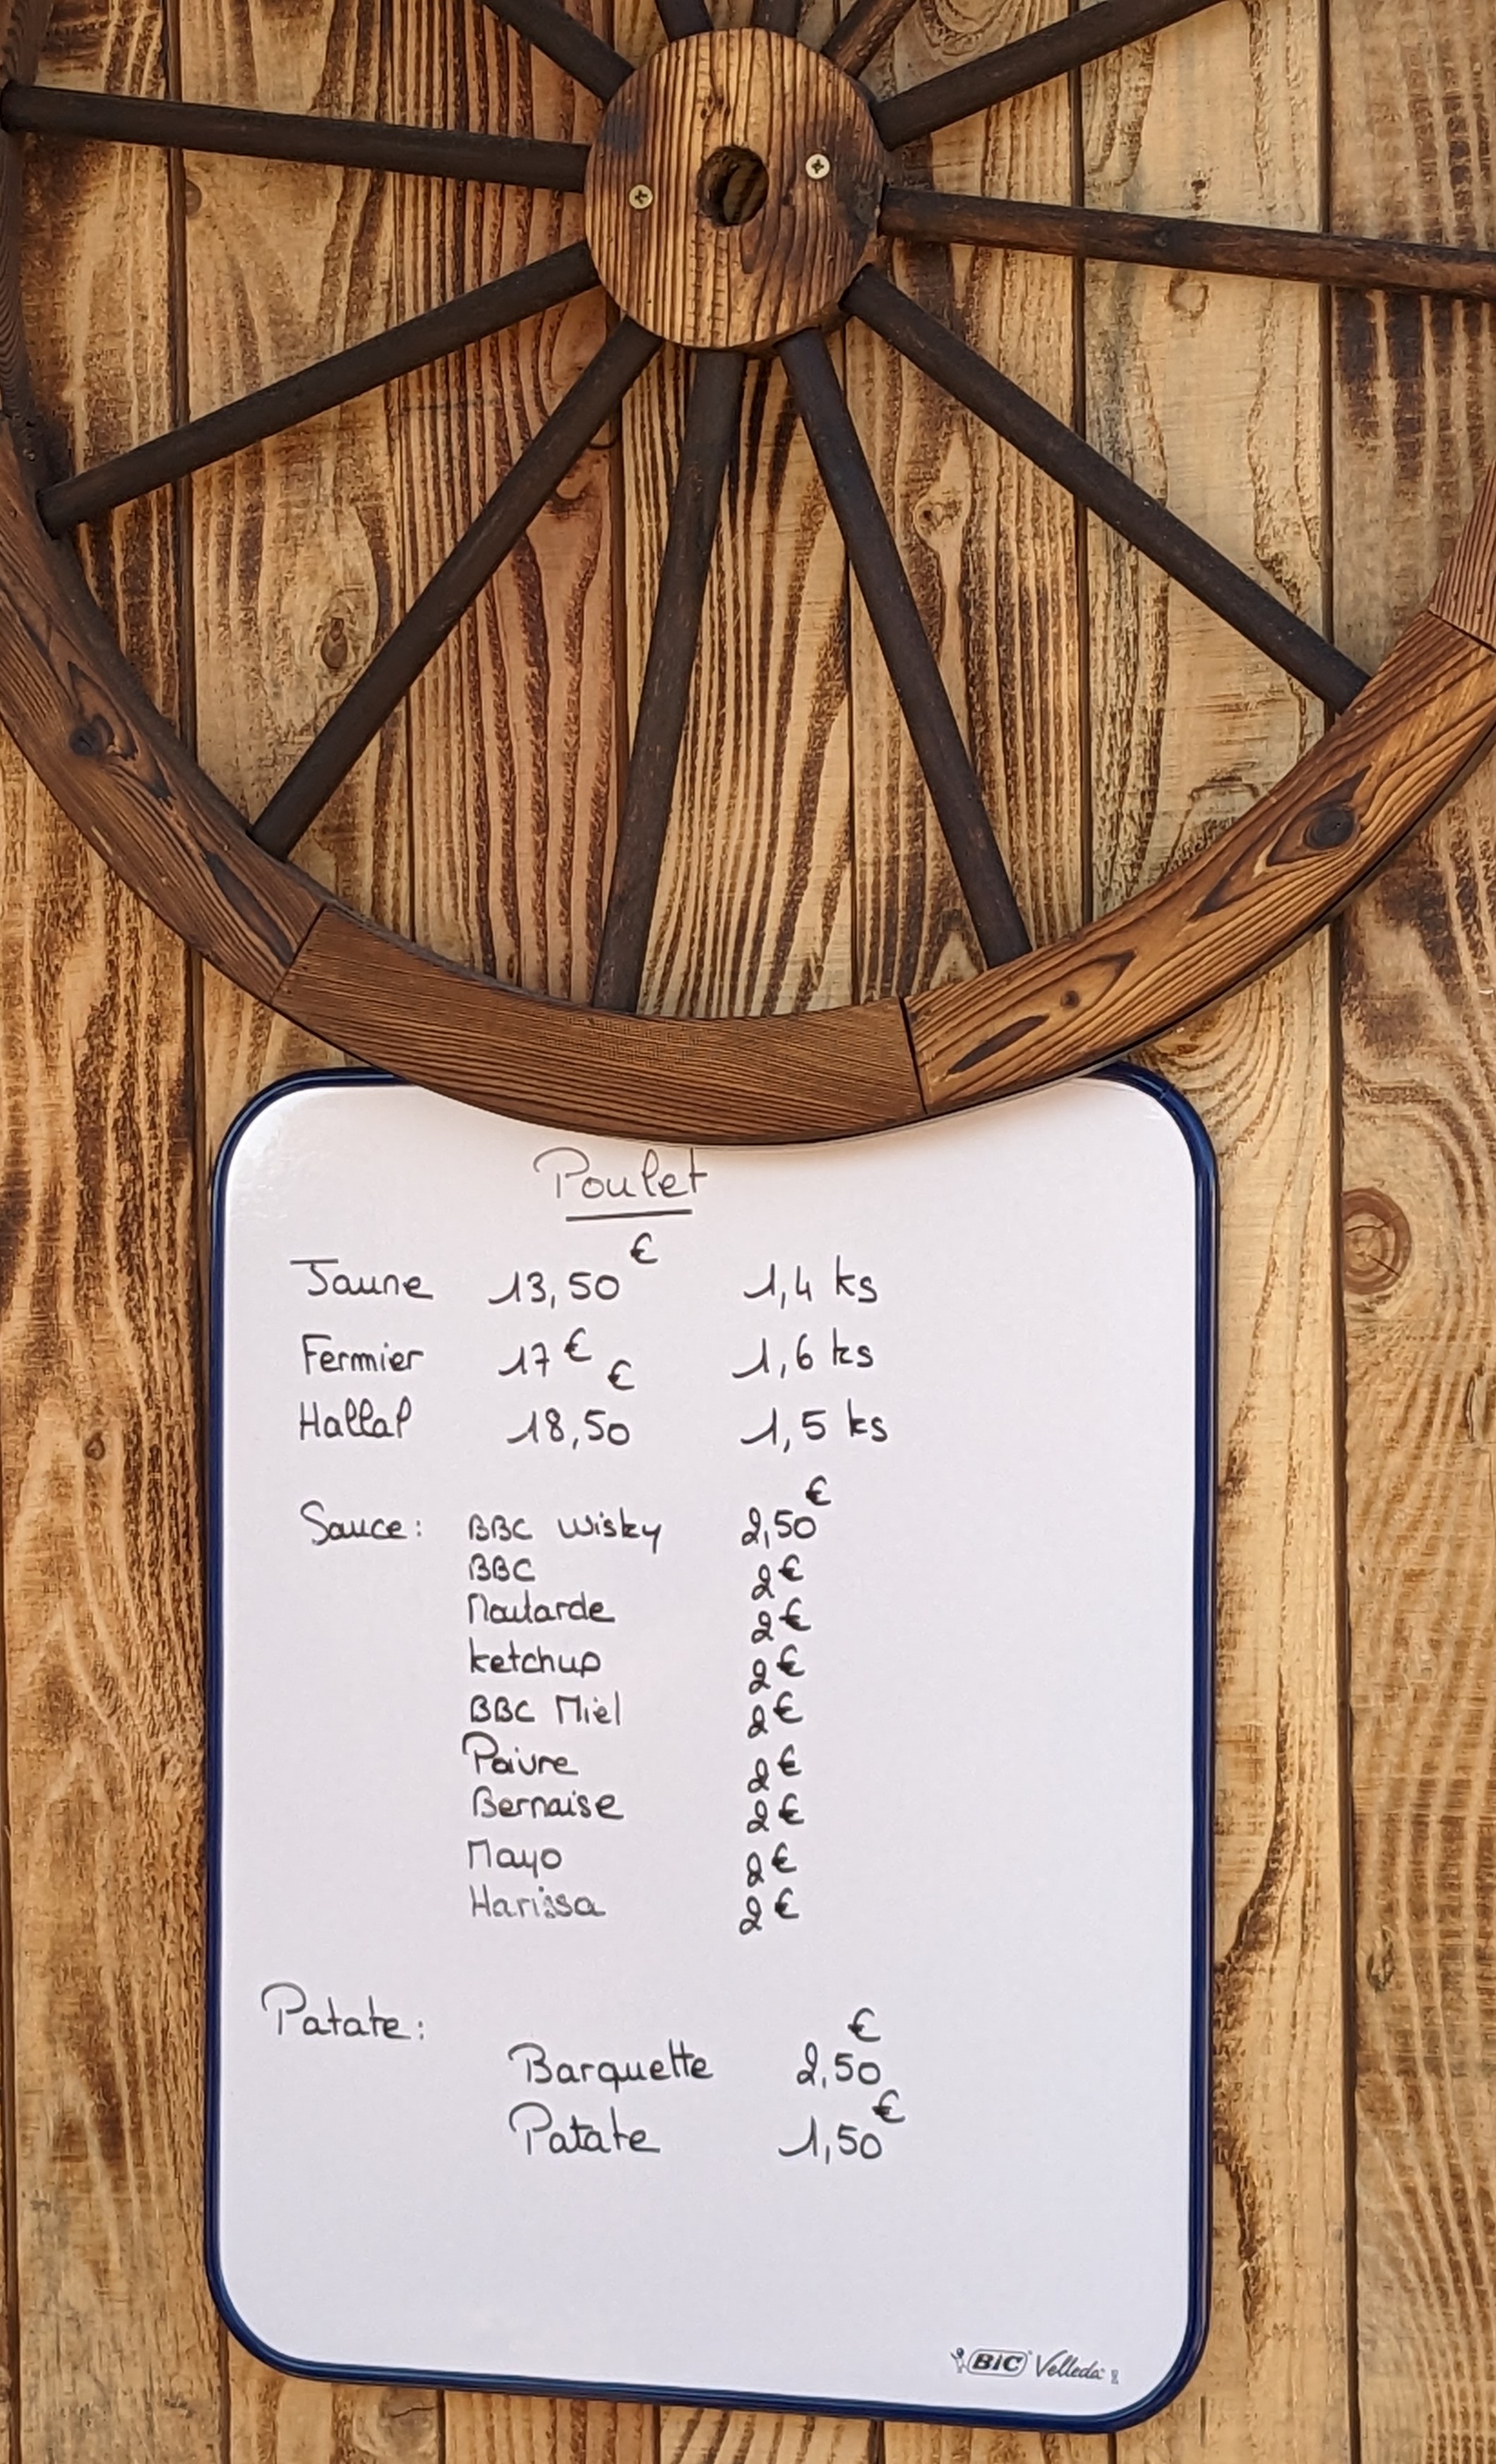 Poulet
Jaune 13,50€ 1,4 kg
Fermier 17€ 1,6 kg
Hallal 18,50€ 1,5 kg
Sauce: BBC Wisky 2,50€
BBC 2€
Moutarde 2€
ketchup 2€
BBC Miel 2€
Poivre 2€
Bernaise 2€
Mayo 2€
Harissa 2€
Patate:
Barquette 2,50€
Patate 1,50€
BIC Velleda